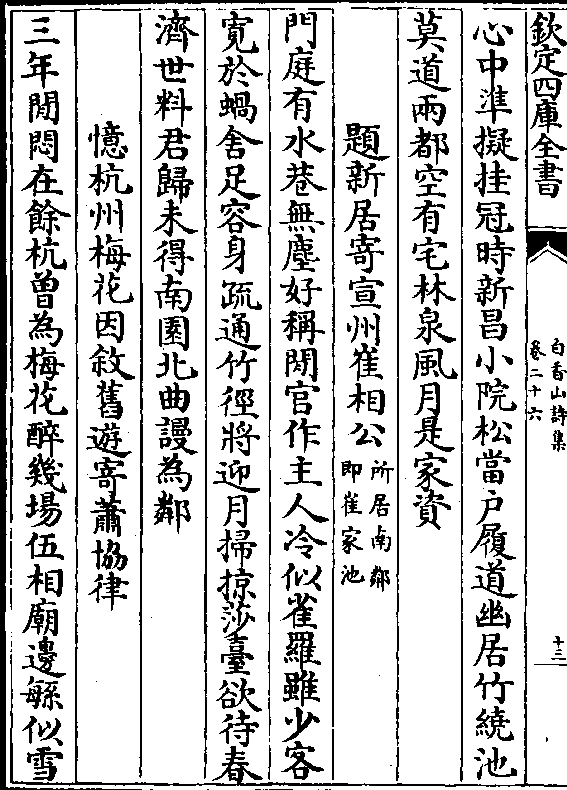 欽定四庫全書
白香山詩集
卷二十六
十三
心中準擬挂冠時新昌小院松當户履道幽居竹繞池
莫道兩都空有宅林泉風月是家資
題新居寄宣州崔相公
所居南鄰
即崔家池
門庭有水巷無塵好稱閒官作主人冷似雀羅雖少客
寛於蝸舍足容身疏通竹徑將迎月掃掠莎臺欲待春
濟世料君歸未得南園北曲謾為鄰
憶杭州梅花因敘舊遊寄蕭協律
三年閒悶在餘杭曾為梅花醉幾塲伍相廟邊繁似雪